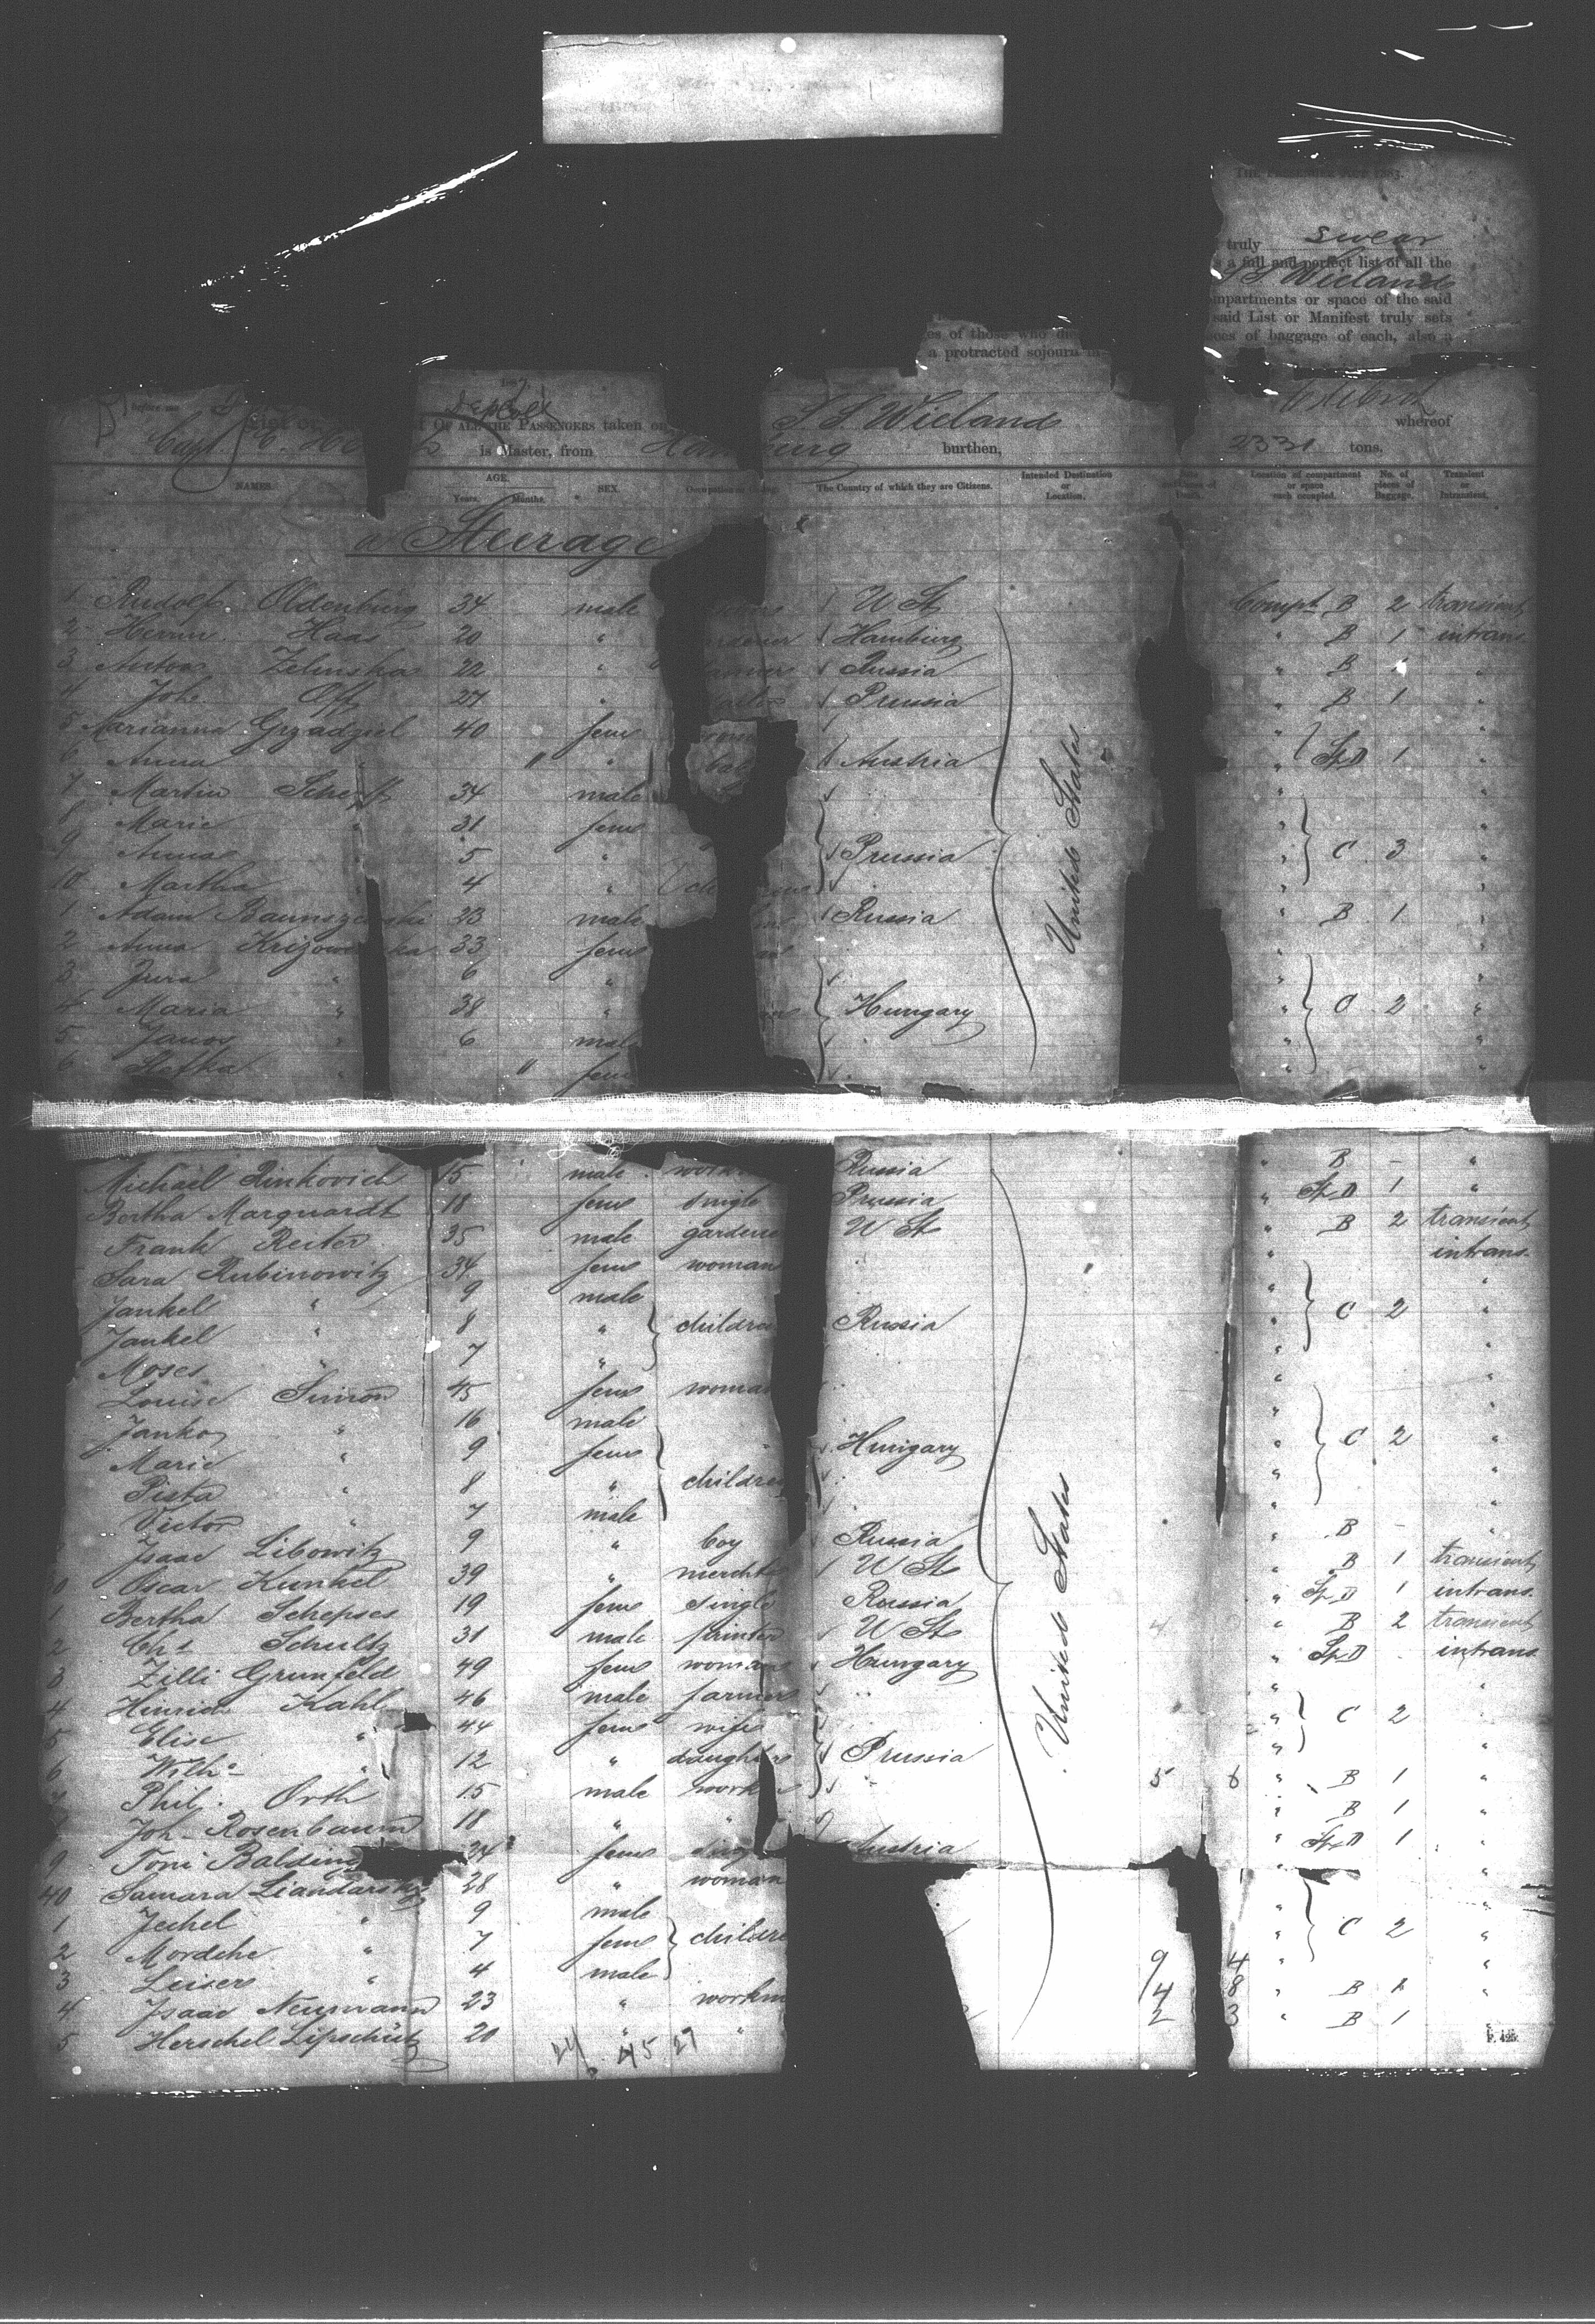 THE PASSENGER ACT 188
truly swear
s a full and perfect list of all the
S. S. Wieland
mpartments or space of the said
said List or Manifest truly sets
es of those who di
ces of baggage of each, also a
a protracted sojourn in
188
before me
List or OF ALL THE PASSENGERS taken on S. S. Wieland whereof
Capt. is Master, from Hamburg burthen, tons.
NAMES. AGE. Years. Months. SEX. Occupation or Calling. The Country of which they are Citizens. Intended Destination or Location. Location of compartment or space each occupied. No. of pieces of Baggage. Transient or Intransient.
Steerage
1 Rudolf Oldenburg 34 male U St Compt. B 2 transient
2 Herm. Haas 20 " Hamburg " B 1 intrans.
3 Anton Zelinska 22 " Russia " B "
4 Joh. Off 27 " Prussia " B 1 "
5 Marianna Grzadziel 40 fem "
6 Anna " 11 " baby Austria " Sp.D 1 "
7 Martin Scherf 34 male " "
8 Marie " 31 fem " "
9 Anna " 5 " Prussia " C 3 "
10 Martha " 4 " " "
1 Adam 23 male Russia " B 1 "
2 Anna 33 fem "
3 Jura " 6 " " "
4 Maria " 38 " Hungary " C 2 "
5 Janos " 6 male " "
6 " 11 fem " "
United States
Michael Rinkovich 15 male work Russia " B - "
Bertha Marquardt 18 fem single Prussia " Sp.D 1 "
Frank Reiter 35 male gardene U St " B 2 transient
Sara Rubinowitz 34 fem woman " intrans.
Jankel " 9 male " "
Jankel " 8 " children Russia " C 2 "
Moses " 7 " " "
Louise Simon 45 fem woman " "
Janko " 16 male " "
Marie " 9 fem Hungary " C 2 "
Pista " 8 " children " "
Victor " 7 male " "
Isaac Libowitz 9 " boy Russia " B - "
0 Oscar Kunkel 39 " mercht U St " B 1 transient
1 Bertha Schepses 19 fem single Russia " Sp.D 1 intrans.
2 Chs Schultz 31 male printer U St " B 2 transient
3 Zilli Grunfeld 49 fem woman Hungary " Sp.D - intrans
4 Hinrich Kahl 46 male farmer " "
5 Elise " 44 fem wife " C 2 "
6 Wilhe " 12 " daughter Prussia " "
7 Phil. Orth 15 male work 5 6 " B 1 "
Joh. Rosenbaum 18 " " " B 1 "
9 Toni 24 fem sing Austria " Sp.D 1 "
40 Samara 28 " woman "
1 Jechel " 9 male " "
2 Mordche " 7 fem children " C 2 "
3 Leiser " 4 male 9 4 " "
4 Isaac Neumann 23 " workm 4 8 " B 1 "
5 Herschel Lipschütz 20 " " 2 3 " B 1 "
United States
45 27